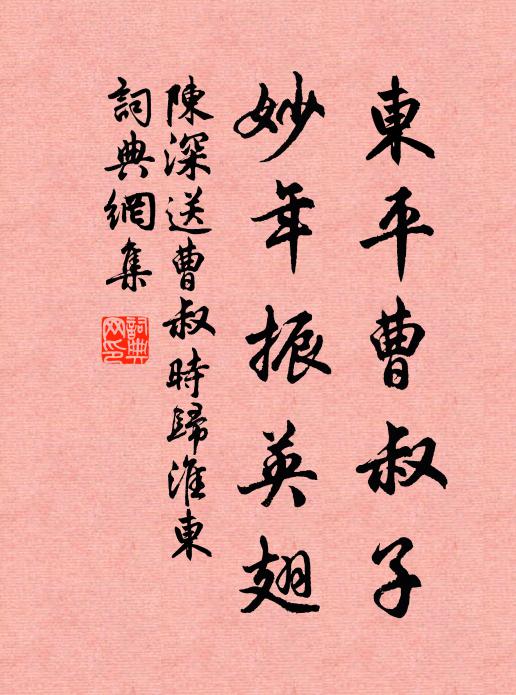 東平曹叔子
妙年振英翅
陳深送曹叔時歸淮東
詞典網集
詞典网印